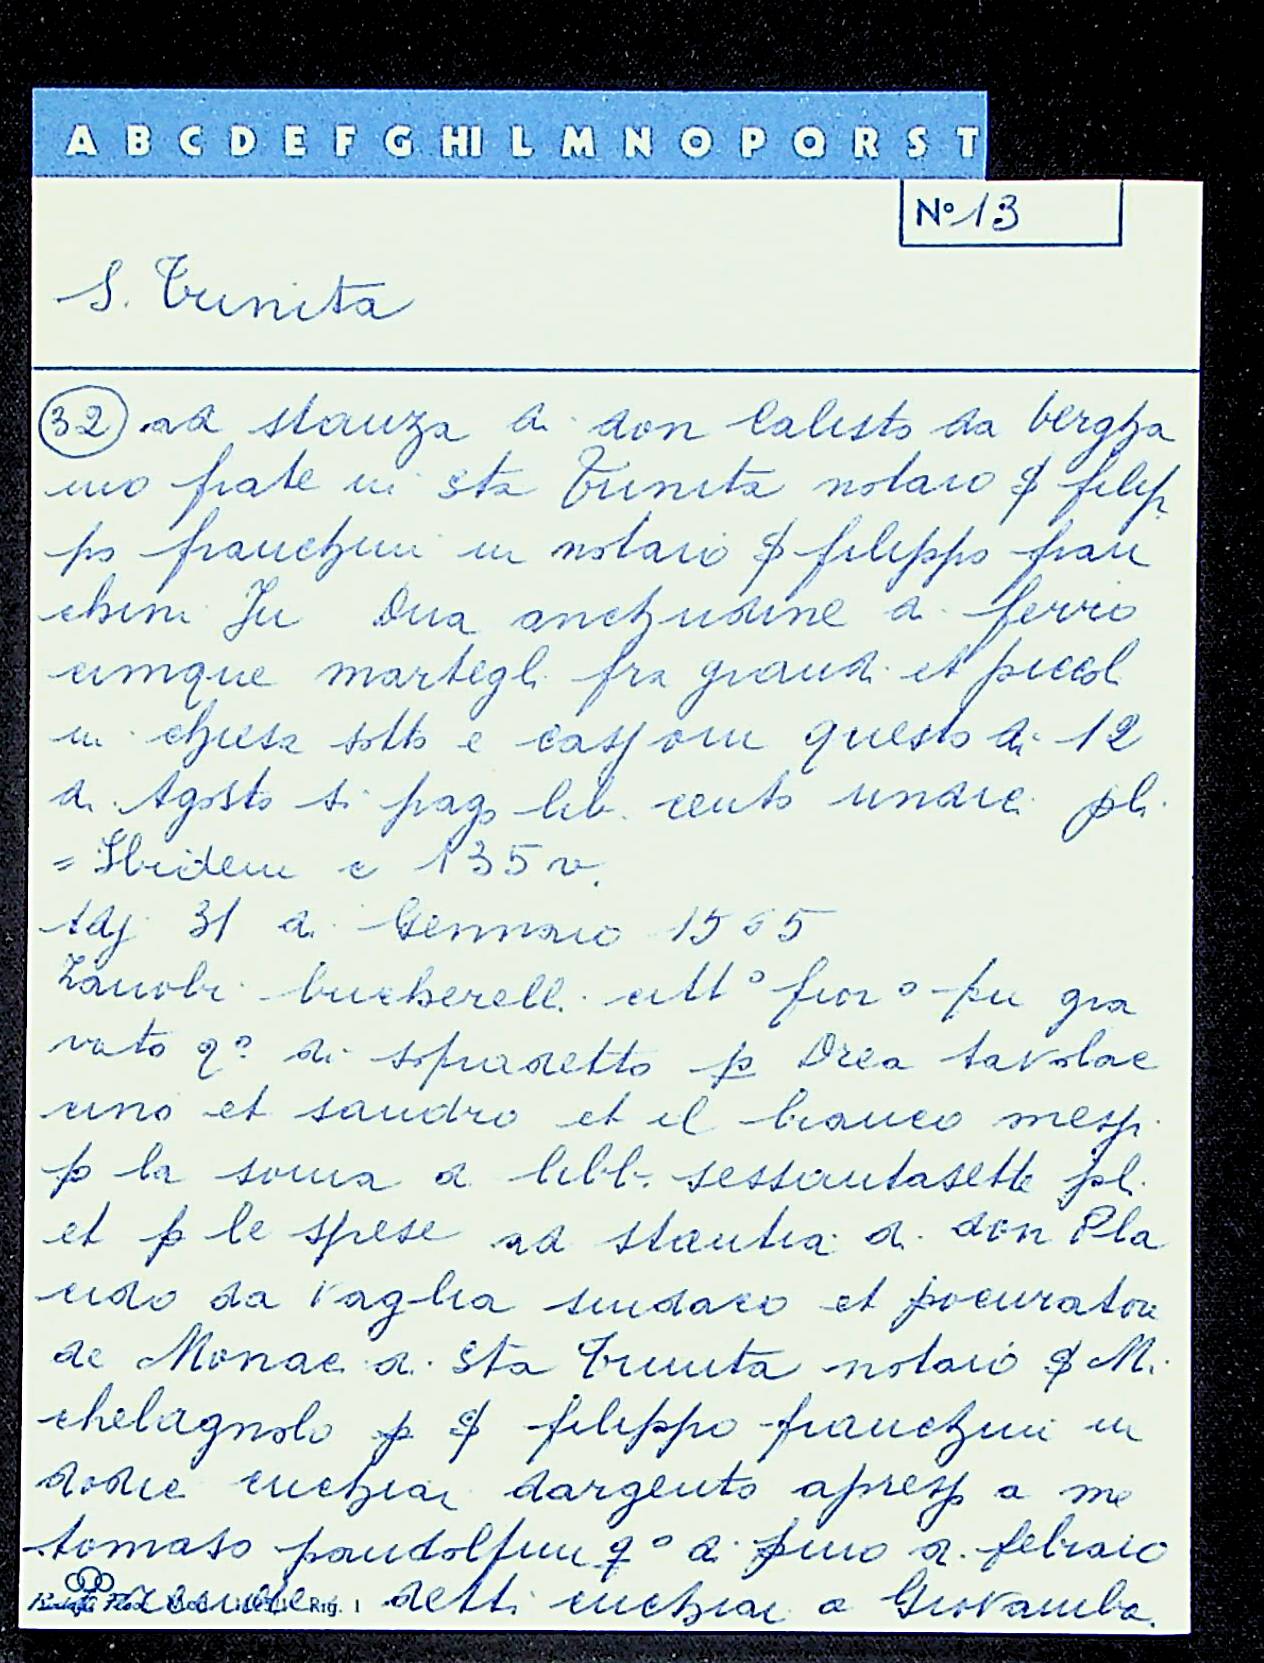 A B C D E F G HI L M N O P Q R S T
N° 13
S. Trinita
32 ad stanza di don Calisto da bergha
mo frate in sta Trinita notaio S filip
po franchini in notaio S filippo fran
chini In Dua anchudine di ferro
cinque martegli fra grandi et piccoli
in chiesa sotto e cassoni questo di 12
di Agosto si pago lib. cento undici pli.
= Ibidem c 135 v.
Adj 31 di Gennaio 1565
Zanobi bucherelli citt° fior° fu gra
vato q° di sopradetto p Drea tavolac
cino et sandro et il branco messi
p la soma di libb. sessantasette pl.
et p le spese ad stantia di don Pla
cido da vaglia sindaco et pocuratore
de Monaci di Sta Trinita notaio S Mi
chelagnolo p S filippo franchini in
dodici cuchiai dargento apresso a me
tomaso pandolfini q° di primo di febraio
detti cuchiai a Giovamba.